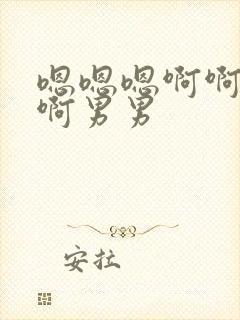 嗯嗯嗯啊啊
啊男男
安拉